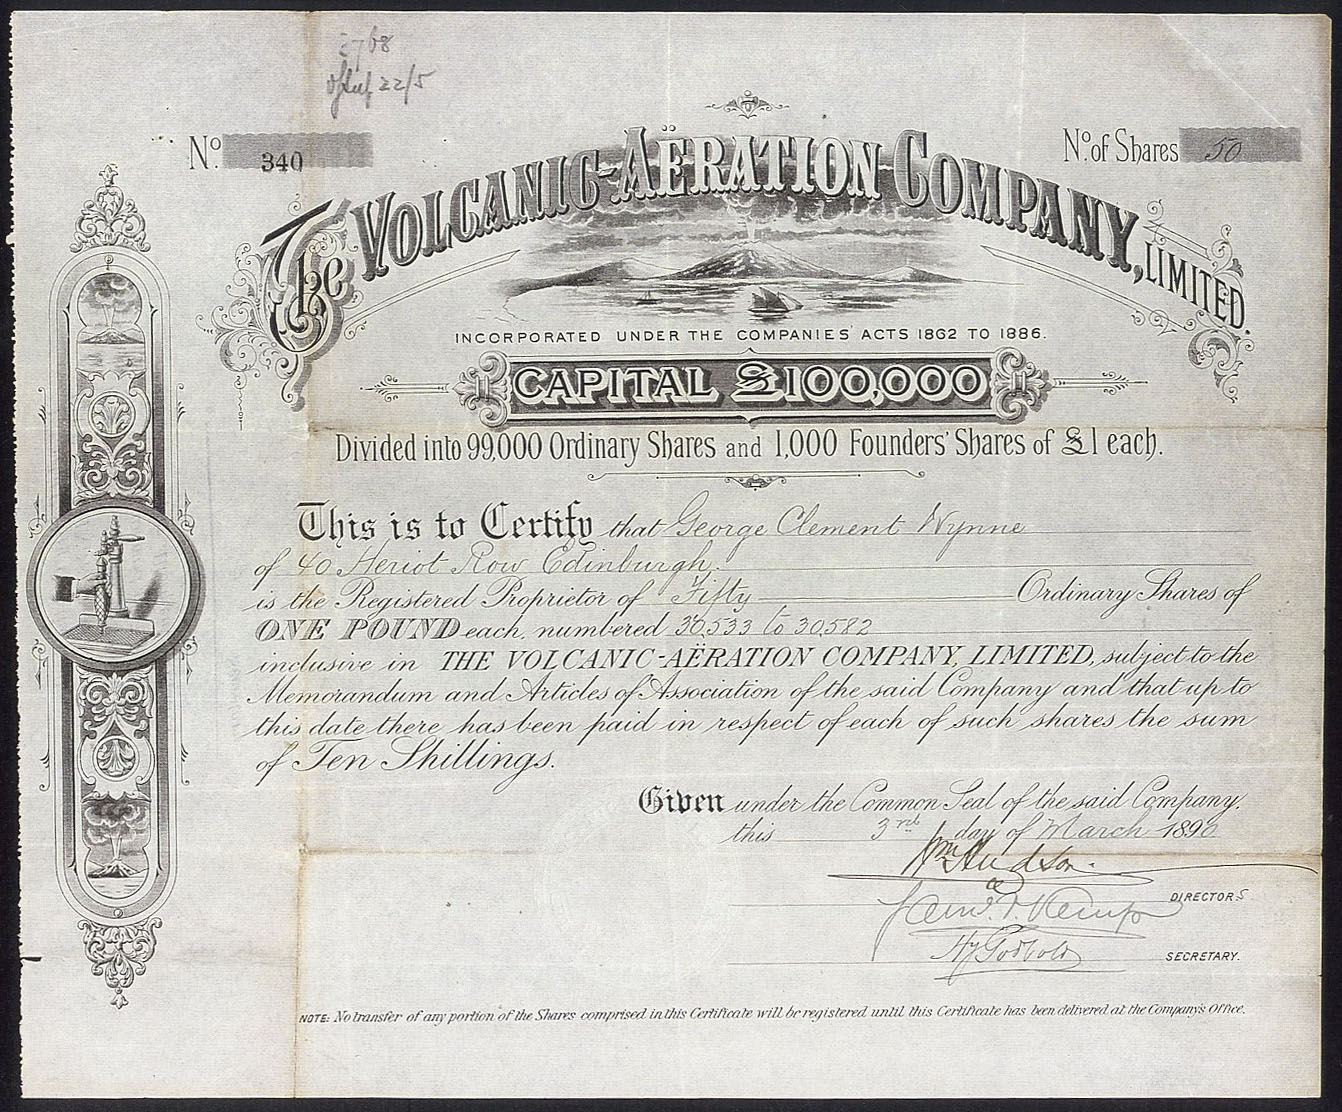 2768
22/5
No. 340
No. of Shares 50
The VOLCANIC-AËRATION COMPANY, LIMITED.
INCORPORATED UNDER THE COMPANIES' ACTS 1862 TO 1886.
CAPITAL £100,000
Divided into 99,000 Ordinary Shares and 1,000 Founders' Shares of £1 each.
This is to Certify that George Clement Wynne
of 40 Heriot Row Edinburgh.
is the Registered Proprietor of Fifty Ordinary Shares of
ONE POUND each, numbered 30,533 to 30,582
inclusive in THE VOLCANIC-AËRATION COMPANY, LIMITED, subject to the
Memorandum and Articles of Association of the said Company and that up to
this date there has been paid in respect of each of such shares the sum
of Ten Shillings.
Given under the Common Seal of the said Company,
this 3rd day of March 1890
Wm Hudson
DIRECTORS
Kemp
Hy Godbold
SECRETARY.
NOTE: No transfer of any portion of the Shares comprised in this Certificate will be registered until this Certificate has been delivered at the Company's Office.